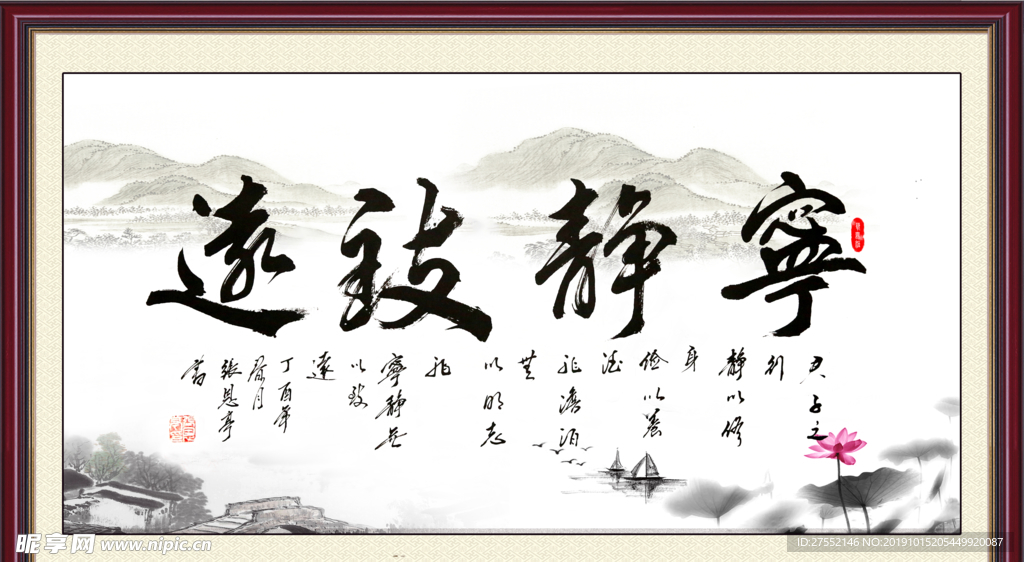 寧靜致遠
君子之
行
靜以修
身
儉以養
德
非澹泊
無
以明志
非
寧靜無
以致
遠
丁酉年
月
張恩亭
書
昵享网 www.nipic.cn
ID:27552146 NO:20191015205449920087